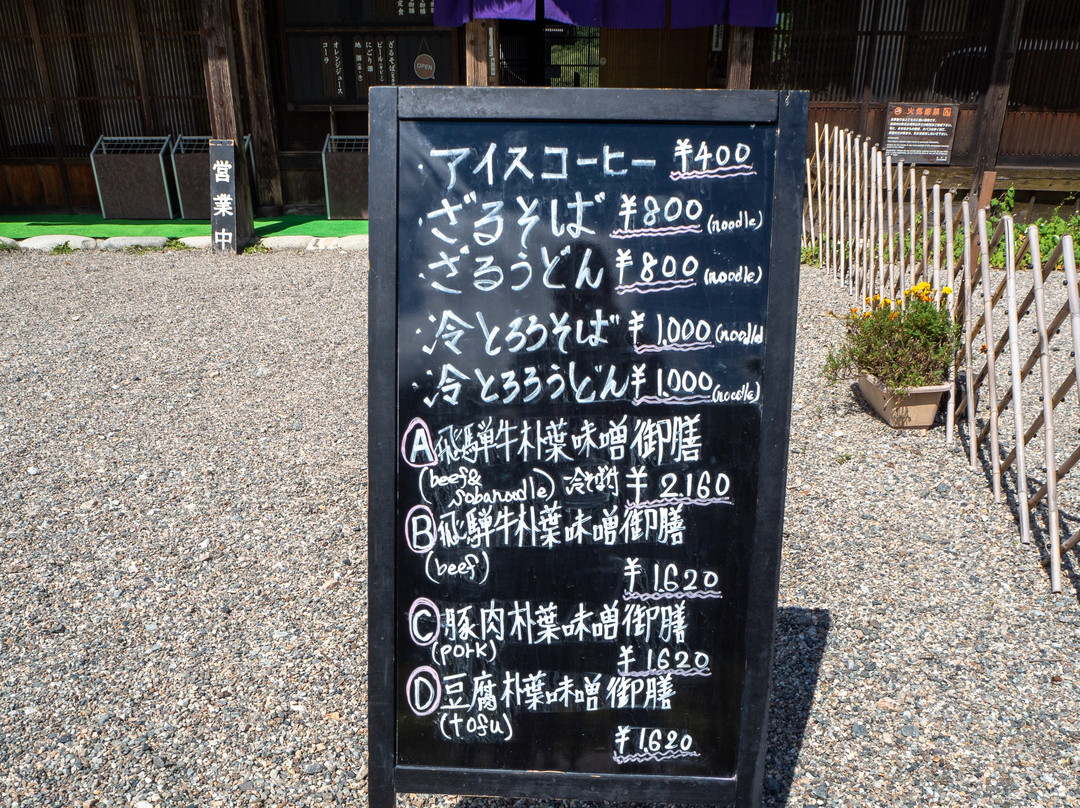 OPEN
オレンジジュース
コーラ
営業中
アイスコーヒー ¥400
ざるそば ¥800 (noodle)
ざるうどん ¥800 (noodle)
冷とろろそば ¥1,000 (noodle
冷とろろうどん ¥1,000 (noodle)
A 飛騨牛朴葉味噌御膳
(beef& sobanoodle) 冷そば付 ¥2.160
B 飛騨牛朴葉味噌御膳
(beef)
¥1.620
C 豚肉朴葉味噌御膳
(pork)
¥1620
D 豆腐朴葉味噌御膳
(tofu)
¥1.620
火気厳禁